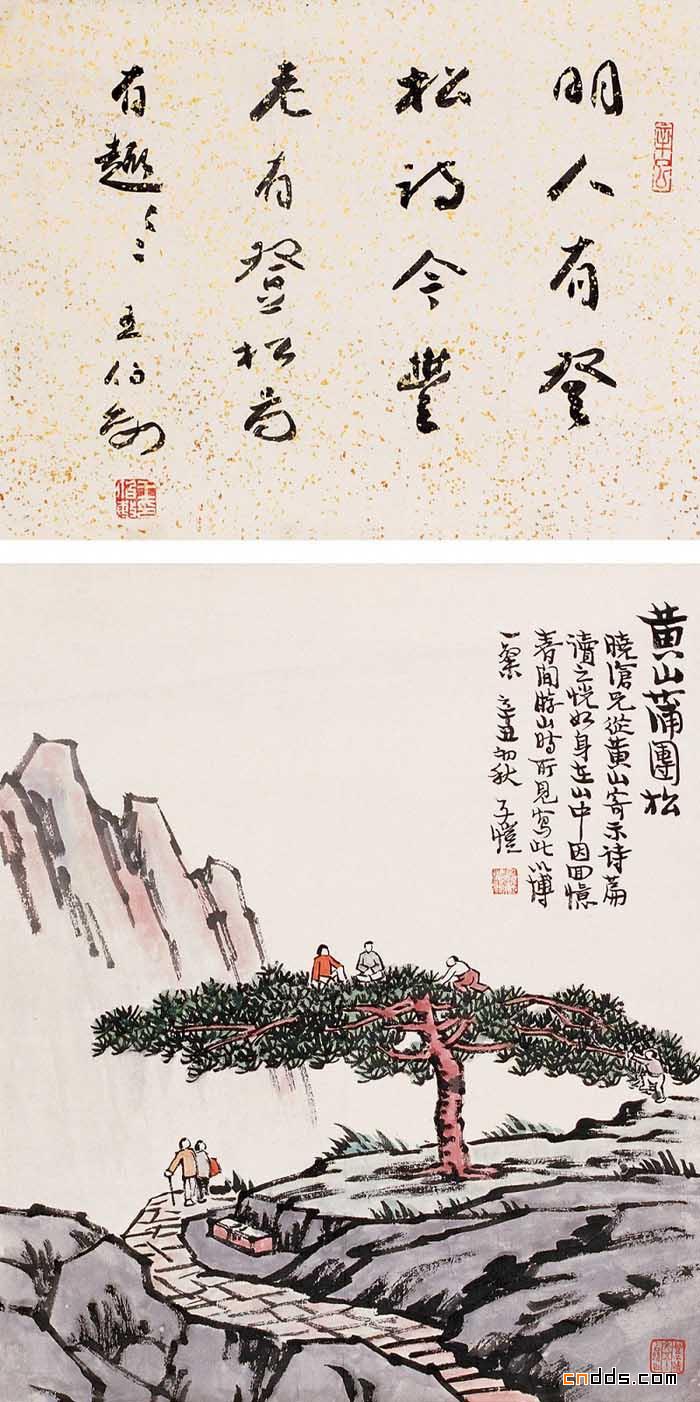 明人有登
松詩今豐
老有登松畫
有趣之至 王伯敏
王伯敏
黄山蒲團松
曉滄兄從黄山寄示诗篇
讀之恍如身在山中因回憶
春间游山時所見寫此以博
一粲 辛丑初秋 子愷
cndds.com